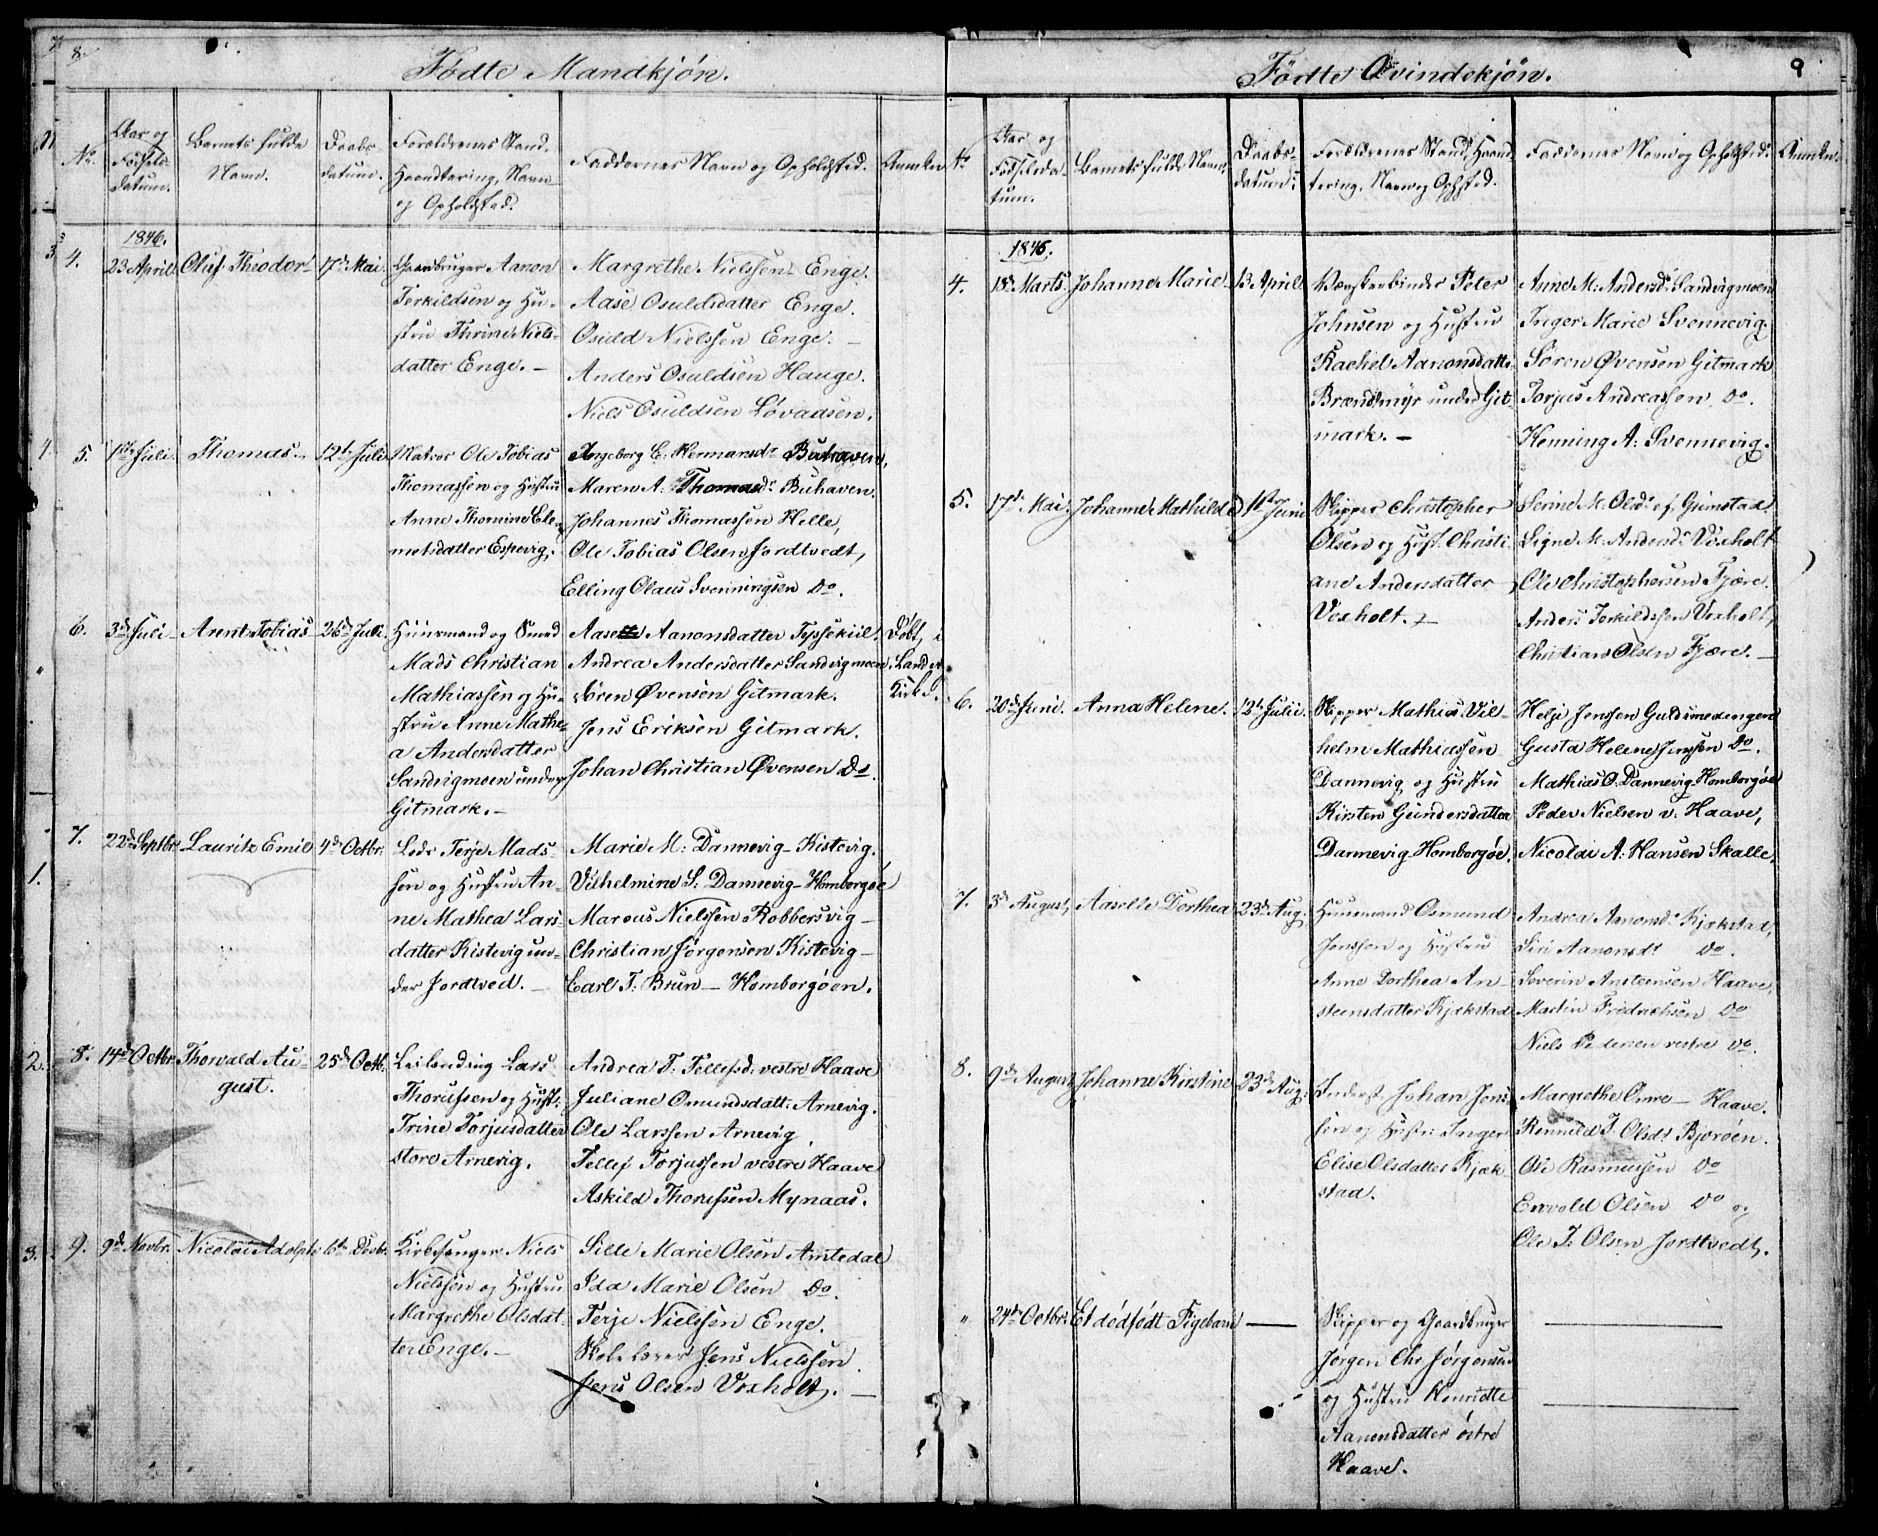 8.
Fødte Mandkjøn.
No.
Aar og
Fødsels
datum.
Barnets fulde
Navn.
Daabs-
datum.
Forældrenes Stand,
Haandtering, Navn
og Opholdsted.
Faddernes Navn og Opholdsted.
Anmærk.
1846.
4.
23 April.
Oluf Theodor
17de Mai.
Gaardbruger Aanon
Terkildsen og Hu-
stru Thrine Niels-
datter Enge. –
Margrethe Nielssen Enge.
Aase Osuldsdatter Enge.
Osuld Nielssen Enge. –
Anders Osuldsen Hauge.
Niels Osuldsen Løvaasen.
5.
1ste Juli.
Thomas.
12te Juli
Matros Ole Tobias
Thomassen og Hustru
Anne Thomine Cle-
metsdatter Espevig.
Ingeborg E. Hermansdr Buhaven,
Maren A: Thomasdr Buhaven.
Johannes Thomassen Helle,
Ole Tobias Olsen Jordtvedt,
Elling Olaus Svenningsen Do.
6.
3de Juli
Arent Tobias
26de Juli.
Huusmand og Smed
Mads Christian
Mathiassen og Hu-
stru Anne Mathe-
a Andersdatter
Sandvigmoen under
Gitmark. –
Aase Aanonsdatter Tyssekiil.
Andrea Andersdatter Sandvigmoen
Søren Øvensen Gitmark.
Jens Eriksen Gitmark.
Johan Christian Øvensen Do.
Døbt i
Landvi
Kirke.
7.
22de Septbr
Lauritz Emil
4de Octbr.
Lods Terje Mads-
sen og Hustru An-
ne Mathea Lars-
datter Kistevig un-
der Jordtved. –
Marie M: Dannevig – Kistevig.
Vilhelmine S: Dannevig – Homborgøe
Marcus Nielssen Robbersvig –
Christian Jørgensen Kistevig –
Carl T: Brun – Homborgøen.
8.
14de Octbr.
Thorvald Au-
gust.
25de Octb.
Leilænding Lars
Thorufsen og Hust:
Trine Torjusdatter
store Arnevig.
Andrea T. Tellefsd. vestre Haave
Juliane Omundsdatt. Arnevig.
Ole Larssen Arnevig.
Tellef Torjussen vestre Haave
Askild Thorufsen Mynaas.
9.
9de Novbr.
Nicolai Adolph
6te Decbr.
Kirkesanger Niels
Nielssen og Hustru
Margrethe Olsdat-
ter Enge. –
Sille Marie Olsen Amtedal
Ida Marie Olsen Do.
Terje Nielssen Enge.
Skolelærer Jens Nielssen
Jens Olsen Voxholt. –
9
Fødte Qvindekjøn.
No
Aar og
Fødselsda-
tum.
Barnets fulde Navn.
Daabs-
datum.
Forældrenes Stand, Haand-
tering, Navn og Ophsted.
Faddernes Navn og Opholdsted.
Anmkn.
1846.
4.
18de Marts
Johanne Marie
13 April
Peter
Johnsen og Hustru
Rachel Aanonsdatter
Brændsmyr under Git-
mark. –
Anne M: Andersdr Sandvigmoen
Inger Marie Svennevig.
Søren Øvensen Gitmark
Torjus Andreassen Do.
Heming A: Svennevig.
5.
17de Mai.
Johanne Mathilde
1ste Juni
Skipper Christopher
Olsen og Hust. Christi-
ane Andersdatter
Voxholt. –
Serine M. Olsdr af Grimstad.
Signe M. Andersdr Voxholt
Ole Christophersen Fjære.
Anders Terkildssen Voxholt,
Christian Olsen Fjære. –
6.
20de Juni.
Anna Helene.
12te Julii.
Skipper Mathias Vil-
helm Mathiassen
Dannevig og Hustru
Kirsten Gundersdatter
Dannevig Homborgøe.
Helje Jenssen Guldsmedengen
Gusta Helene Jenssen Do.
Mathias O. Dannevig Homborgøe
Peder Nielsen v. Haave,
Nicolai A: Hansen Skalle.
7.
3de August,
Aaselle Dorthea
23de Aug.
Huusmand Osmund
Jenssen og Hustru
Anne Dorthea An-
steensdatter Kjækstad
Andrea Aanonsdr Kjækstad,
Siri Aanonsdr Do.
Severin Ansteensen Haave,
Martin Fredrichsen Do
Niels Pedersen vestre Do.
8.
9de August
Johanne Kirstine
23de Aug:
Inderst Johan Jens-
sen og Hustr: Inger
Elise Olsdatter Kjæk-
stad.
Margrethe Omre – Haave.
Rennild T. Olsdr Bjorøen.
Ole Rasmussen Do
Envold Olsen Do og
Ole T. Olsen Jordtvedt.
"
24de Octbr.
Et dødfødt Pigebarn
Skipper og Gaardbruger
Jørgen Chr Jørgensen
og Hustru Henriette
Aanonsdatter østre
Haave.